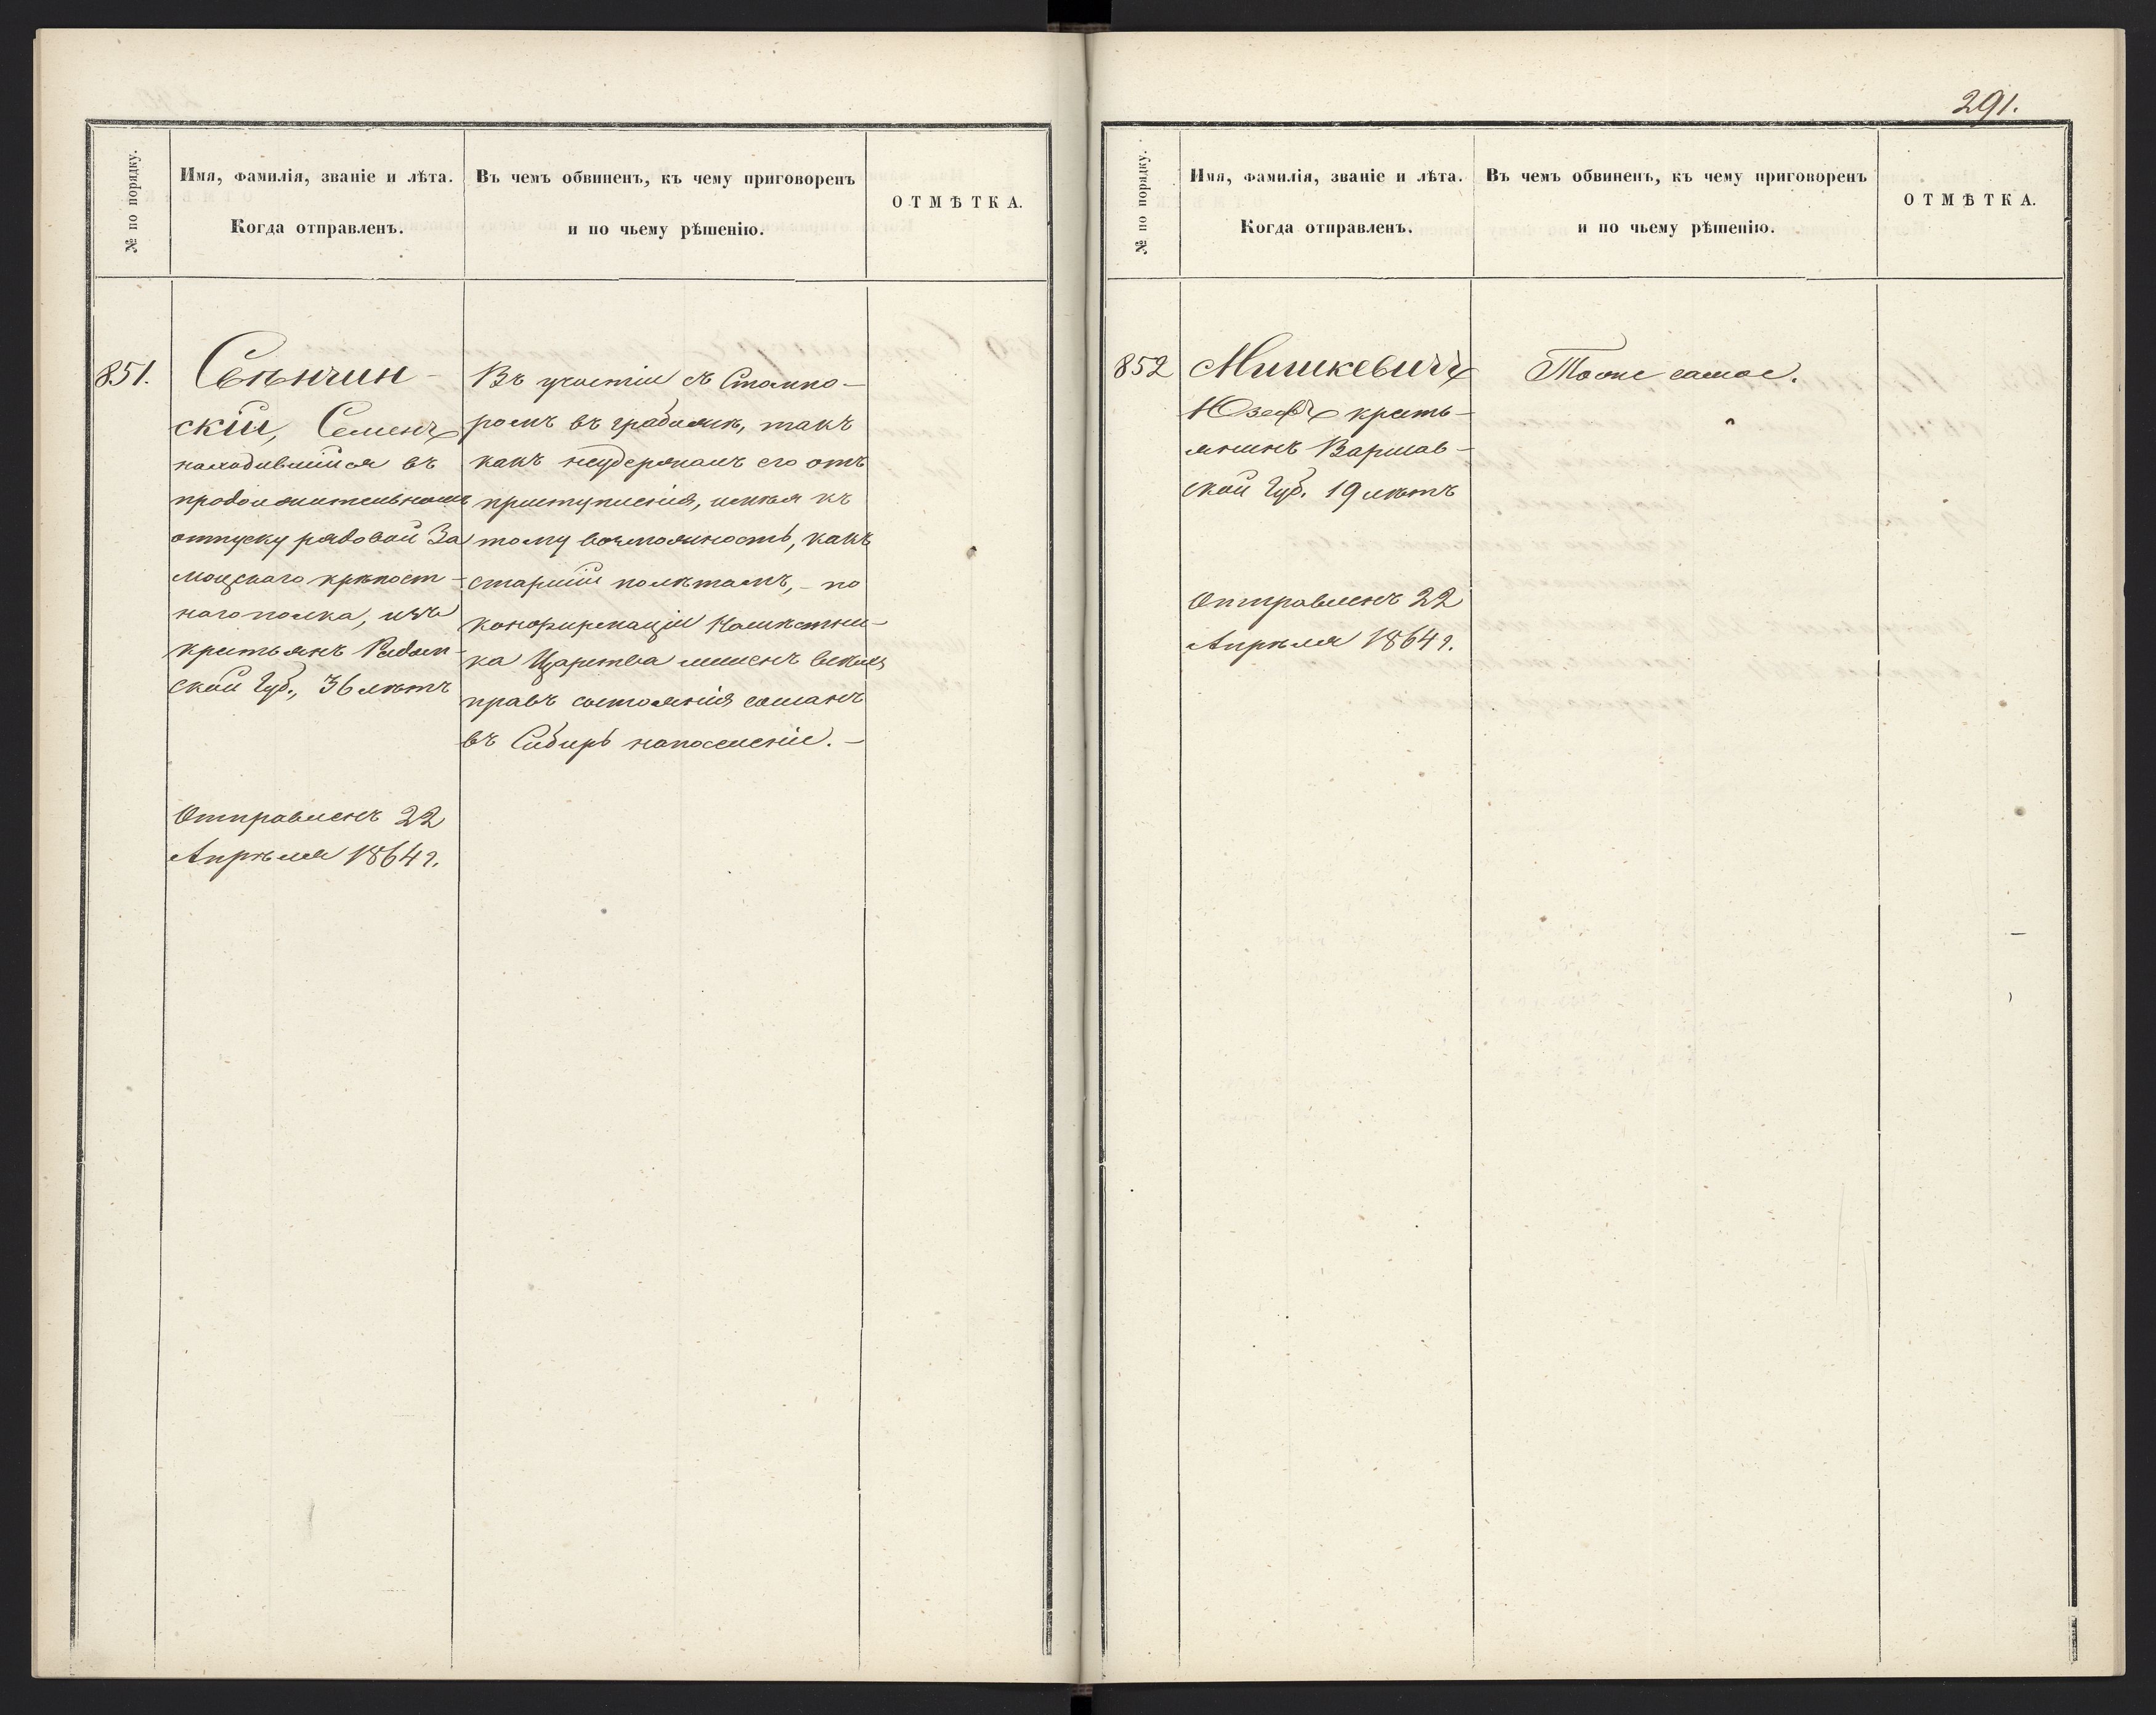 № по порядку.
Имя, фамилія, званіе и лѣта.
Когда отправленъ.
Въ чемъ обвиненъ, къ чему приговоренъ
и по чьему рѣшенію.
ОТМѢТКА.
851.
Свѣнчин-
скій, Семенъ
находившійся въ
продолжительномъ
отпуску рядовой За
мосцскаго крѣпост-
наго полка, изъ
крестьянъ Радом-
ской Губ., 36 лѣтъ
Отправленъ 22
Апрѣля 1864 г.
Въ участіи съ
въ грабежѣ, такъ
какъ неудержалъ его отъ
преступленія, имѣя къ
тому возможность, какъ
старшій полѣтамъ, - по
конфирмаціи Намѣстни-
ка Царства лишенъ всѣхъ
правъ состоянія сосланъ
въ Сибирь напоселеніе. -
291.
№ по порядку.
Имя, фамилія, званіе и лѣта.
Когда отправленъ.
Въ чемъ обвиненъ, къ чему приговоренъ
и по чьему рѣшенію.
ОТМѢТКА.
852
Мишкевичъ
Юзефъ кресть-
янинъ Варшав-
ской Губ. 19 лѣтъ
Отправленъ 22
Апрѣля 1864 г.
Тоже самое.